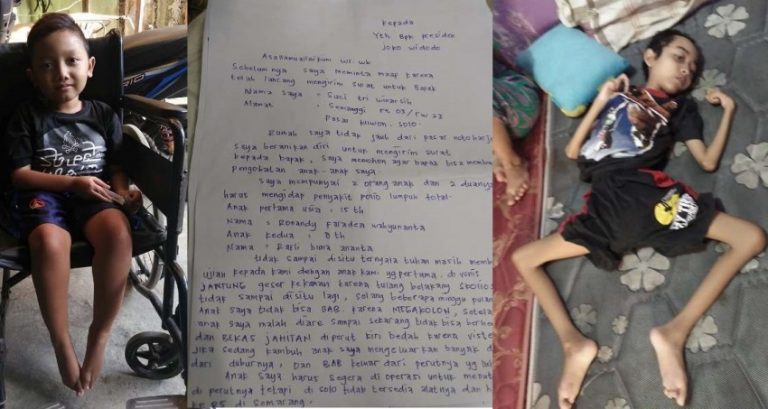 Kepada
Yth Bpk presiden
Joko widodo
Assallamuallaikum wr. wb
Sebelumnya saya meminta maaf karena
telah lancang mengirim surat untuk Bapak
Nama saya : Suci tri winarsih
Alamat : Semanggi rt 03/rw 23
Pasar kliwon. Solo
Rumah saya tidak jauh dari pasar
saya beranikan diri untuk mengirim surat
kepada bapak, saya memohon agar bapak bisa
pengobatan anak-anak saya
saya mempunyai 2 orang anak dan 2 duanya
harus mengidap penyakit polio lumpuh total.
Anak pertama usia : 15 th
Nama : wahyunanta
Anak kedua : 8 th
Nama : Rafli bima ananta
tidak sampai disitu ternyata tuhan masih
ujian kepada kami dengan anak kami yg pertama. di vonis
JANTUNG geser kekanan karena tulang belakang
tidak sampai disitu lagi, selang beberapa minggu
Anak saya tidak bisa BAB. karena MEGAKOLON,
anak saya malah diare sampai sekarang tidak bisa
dan BEKAS JAHITAN diperut kiri bedah karena
Jika sedang kambuh anak saya mengeluarkan banyak
dari dan BAB keluar dari perutnya yg
Anak saya harus segera di operasi untuk
di perutnya tetapi di solo tidak tersedia alatnya dan
ke RS di Semarang.